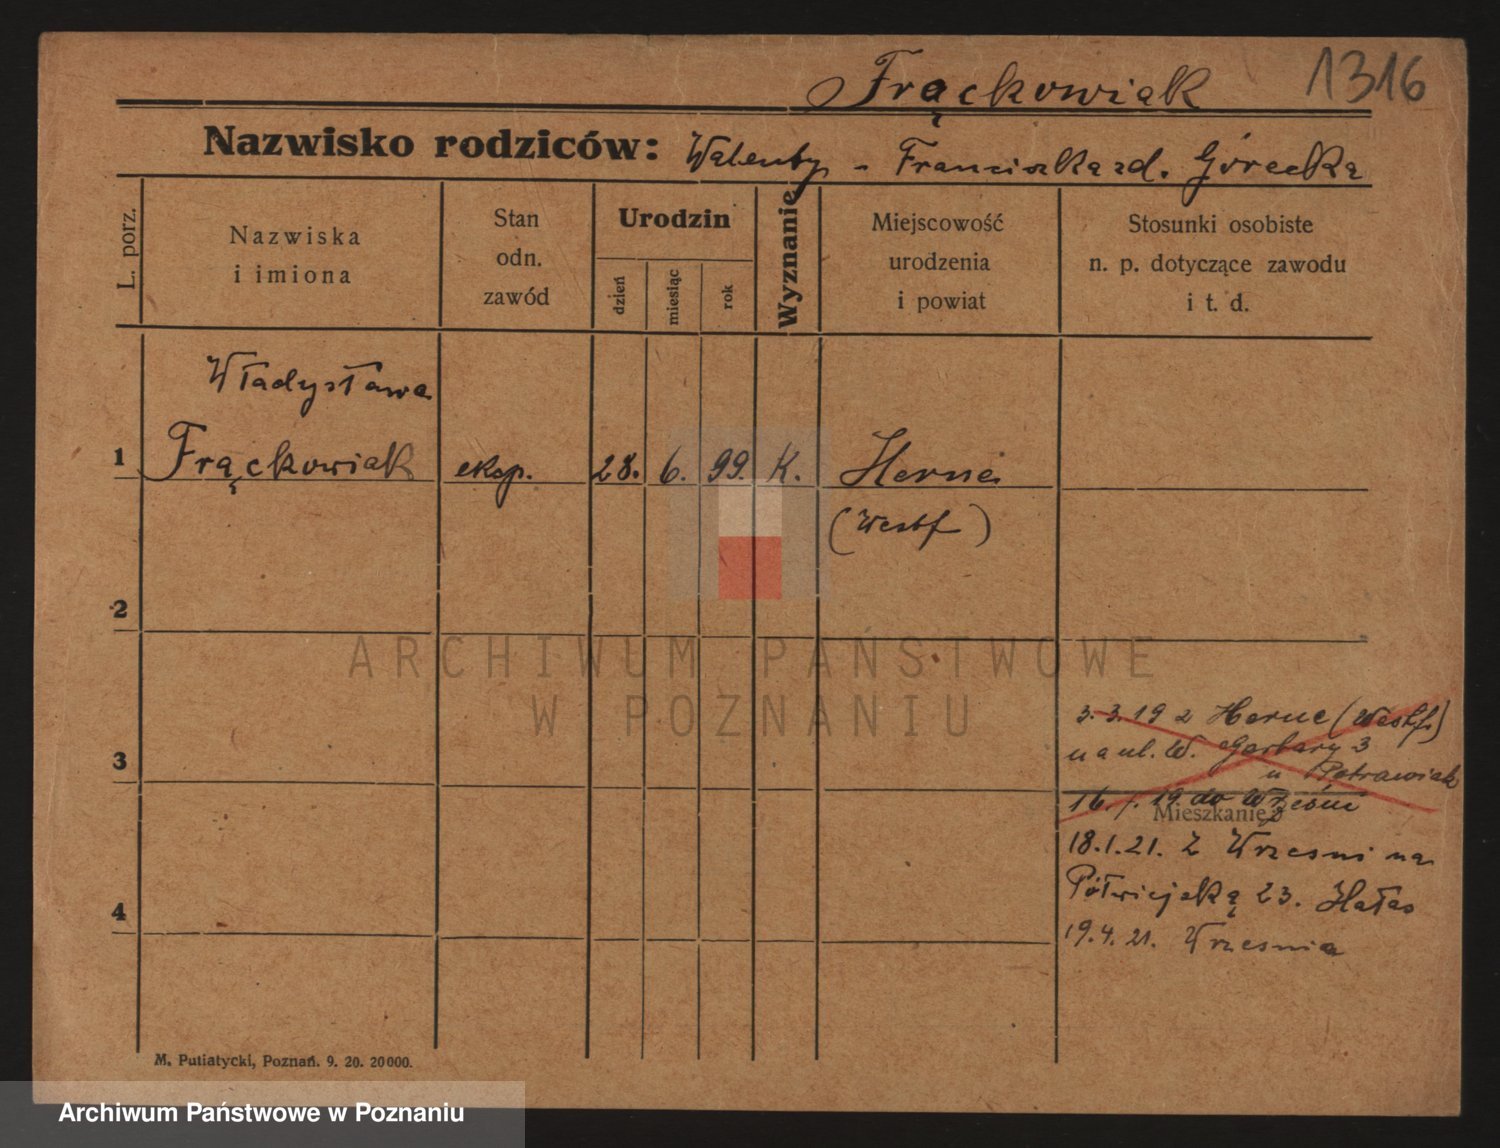 Frąckowiak 1316
Nazwisko rodziców: Walenty - Franciszka zd. Górecka
L. porz.
Nazwiska
i imiona
Stan
odn.
zawód
Urodzin
dzień
miesiąc
rok
Wyznanie
Miejscowość
urodzenia
i powiat
Stosunki osobiste
n. p. dotyczące zawodu
i t. d.
Władysława
1 Frąckowiak eksp. 28. 6. 99. K. Herne
(Westf)
2
ARCHIWUM PAŃSTWOWE
W POZNANIU
3. 3. 19 z Herne (Westf.)
na ul. W. Garbary 3
3
u Potrawiak
16. 19 do Wrześni
Mieszkanie
18.1.21. Z Wrzesni na
Półwiejską 23. Hałas
4
19.4.21. Wrzesnia
M. Putiatycki, Poznań. 9. 20. 20000.
Archiwum Państwowe w Poznaniu